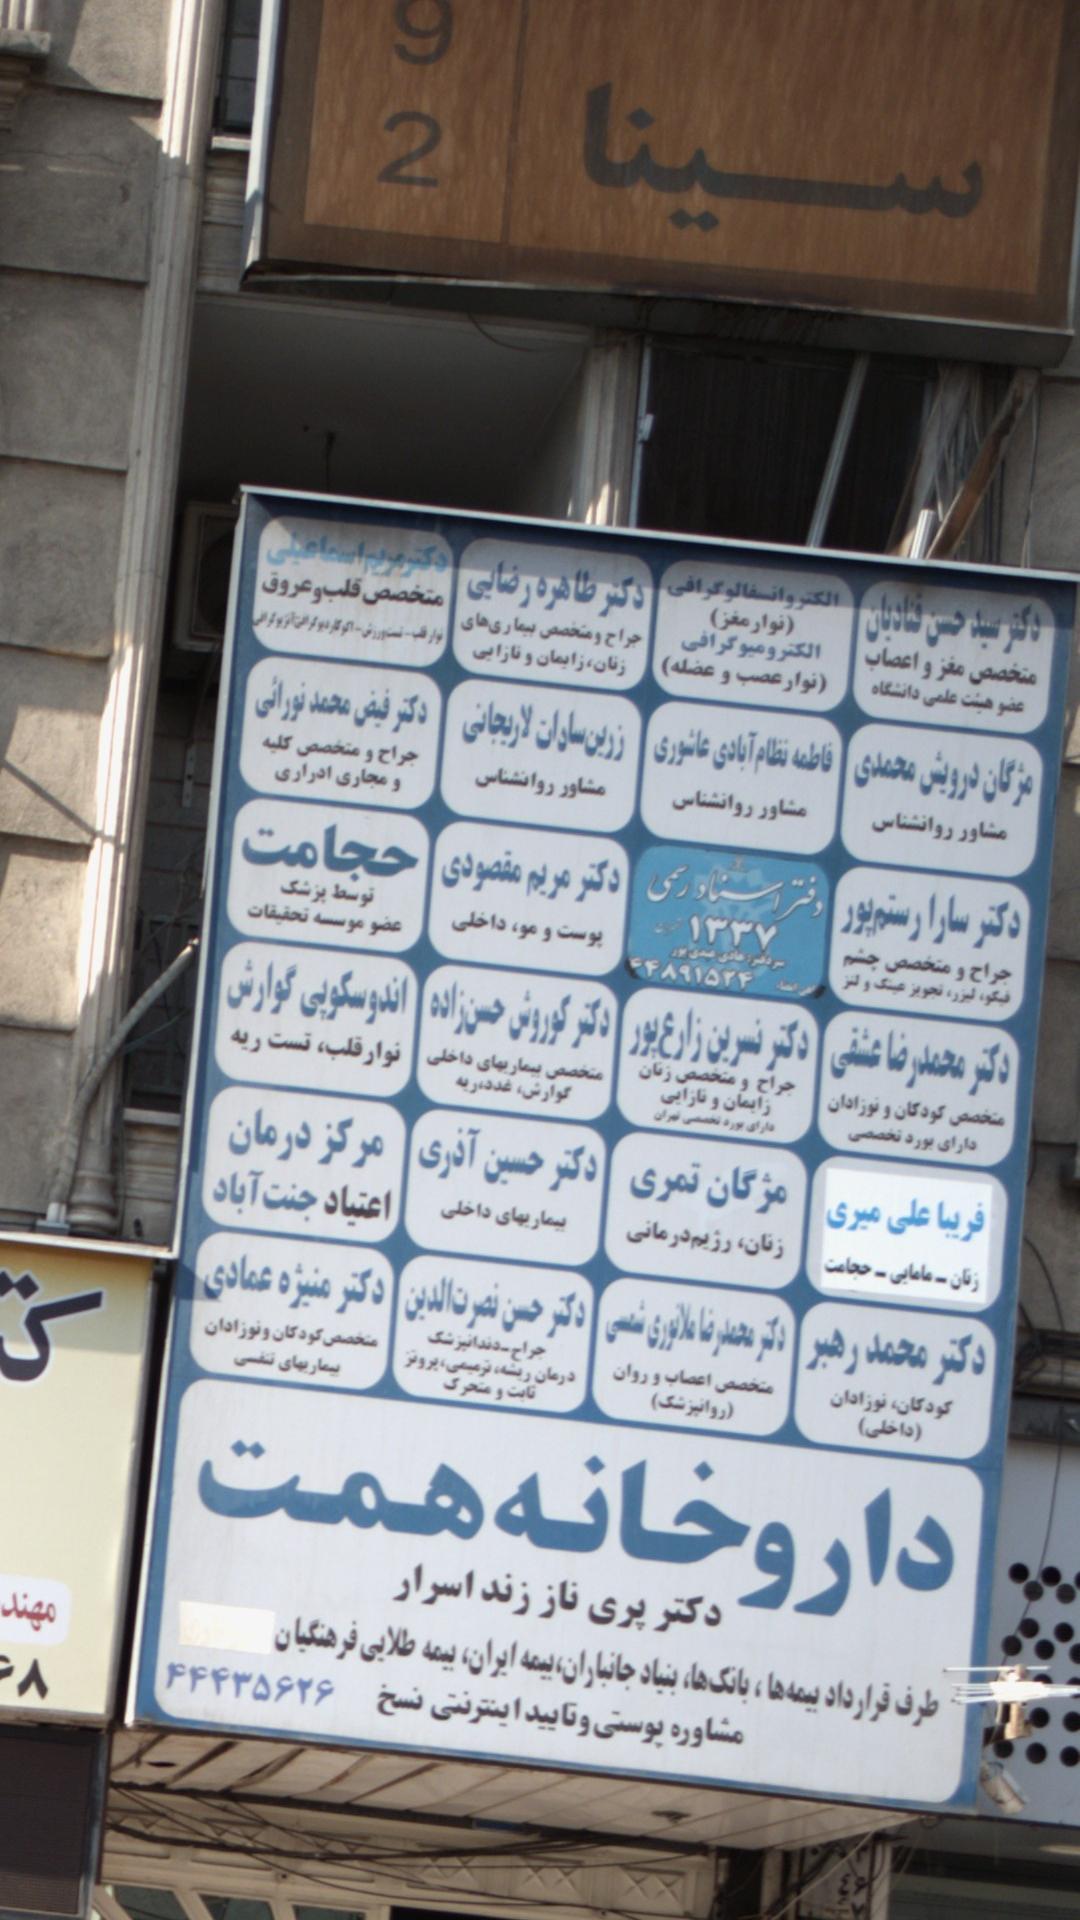 9
2
سینا
دکتر سید حسن قنادیان
متخصص مغز و اعصاب
عضو هیئت علمی دانشگاه
الکتروانسفالوگرافی
(نوار مغز)
الکترومیوگرافی
(نوار عصب و عضله)
دکتر طاهره رضایی
جراح و متخصص بیماری‌های
زنان، زایمان و نازایی
دکتر مریم اسماعیلی
متخصص قلب و عروق
نوار قلب - تست ورزش - اکوکاردیوگرافی
مژگان درویش محمدی
مشاور روانشناس
فاطمه نظام‌آبادی عاشوری
مشاور روانشناس
زرین‌سادات لاریجانی
مشاور روانشناس
دکتر فیض محمد نورائی
جراح و متخصص کلیه
و مجاری ادراری
دکتر سارا رستم‌پور
جراح و متخصص چشم
فیکو، لیزر، تجویز عینک و لنز
دفتر اسناد رسمی
۱۳۳۷
۴۴۸۹۱۵۲۴
دکتر مریم مقصودی
پوست و مو، داخلی
حجامت
توسط پزشک
عضو موسسه تحقیقات
دکتر محمدرضا عشقی
متخصص کودکان و نوزادان
دارای بورد تخصصی
دکتر نسرین زارع‌پور
جراح و متخصص زنان
زایمان و نازایی
دارای بورد تخصصی تهران
دکتر کوروش حسن‌زاده
متخصص بیماریهای داخلی
گوارش، غدد، ریه
اندوسکوپی گوارش
نوار قلب، تست ریه
فریبا علی میری
زنان - مامایی - حجامت
مژگان تمری
زنان، رژیم‌درمانی
دکتر حسین آذری
بیماریهای داخلی
مرکز درمان
اعتیاد جنت‌آباد
دکتر محمد رهبر
کودکان، نوزادان
(داخلی)
دکتر محمدرضا ملانوری شمسی
متخصص اعصاب و روان
(روانپزشک)
دکتر حسن نصرت‌الدین
جراح - دندانپزشک
درمان ریشه، ترمیمی، پروتز
ثابت و متحرک
دکتر منیژه عمادی
متخصص کودکان و نوزادان
بیماریهای تنفسی
داروخانه همت
دکتر پری ناز زند اسرار
طرف قرارداد بیمه‌ها، بانک‌ها، بنیاد جانبازان، بیمه ایران، بیمه طلایی فرهنگیان
مشاوره پوستی و تایید اینترنتی نسخ
۴۴۴۳۵۶۲۶